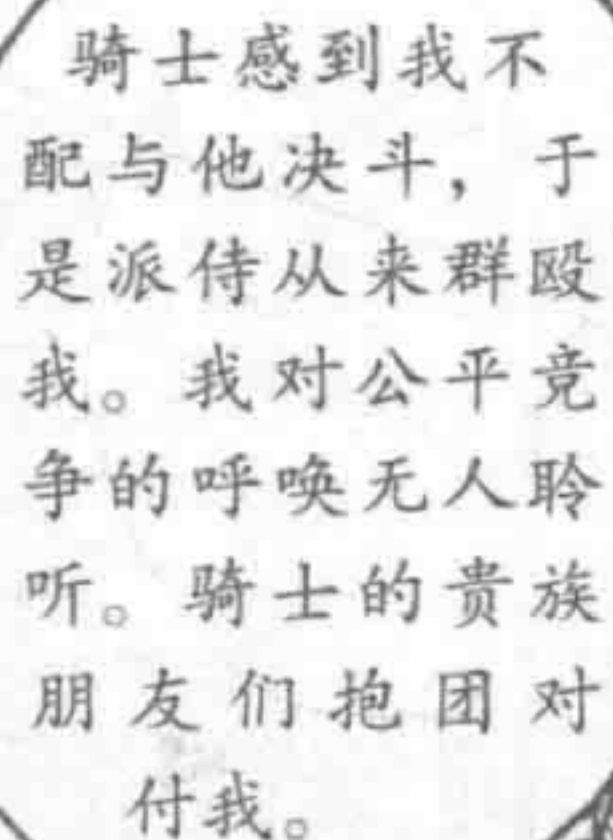 骑士感到我不
配与他决斗，于
是派侍从来群殴
我。我对公平竞
争的呼唤无人聆
听。骑士的贵族
朋友们抱团对
付我。